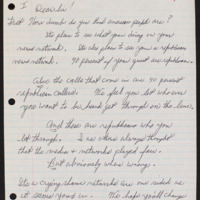 I
First How dumb do you think American people are?
Its plain to see what you doing on your
news network. Its also plain to see your a republican
news network. 90 percent of your guest are republican.
Also the calls that come in are 90 percent
republican callers. We feel you let who ever
you want to be heard get through on the line.
And these are republicans who you
let through. I always thought
that the media & networks played fair.
But obviously I was wrong.
Its a crying shame networks are one sided as
it seems yours is. We hope you'll change